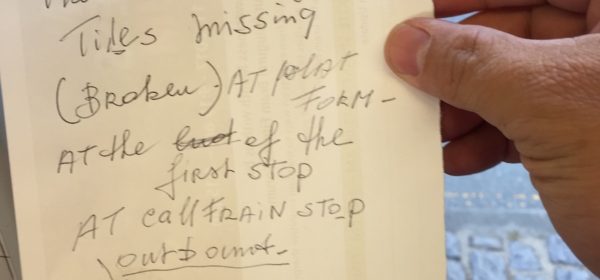 Tiles missing
(Broken) AT PLAT
FORM -
AT the of the
first stop
AT call TRAIN STOP
outbound -